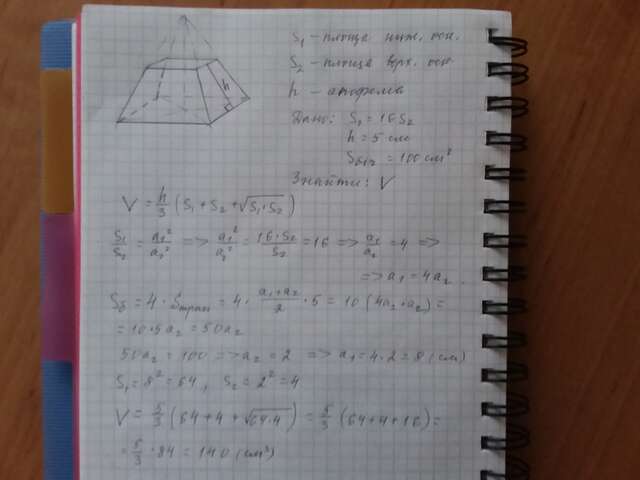 S₁ - площа ниж. осн.
S₂ - площа верх. осн.
h
h - апофема
Дано: S₁ = 16 S₂
h = 5 см
Sбіч = 100 см²
Знайти: V
V = h/3 (S₁ + S₂ + √(S₁·S₂))
S₁/S₂ = a₁²/a₂² => a₁²/a₂² = 16·S₂/S₂ = 16 => a₁/a₂ = 4 =>
=> a₁ = 4a₂.
Sб = 4 · Sтрап = 4 · (a₁+a₂)/2 · 5 = 10 (4a₂+a₂) =
= 10·5a₂ = 50a₂
50a₂ = 100 => a₂ = 2 => a₁ = 4·2 = 8 (см)
S₁ = 8² = 64, S₂ = 2² = 4
V = 5/3 (64 + 4 + √(64·4)) = 5/3 (64+4+16) =
= 5/3 · 84 = 140 (см³)